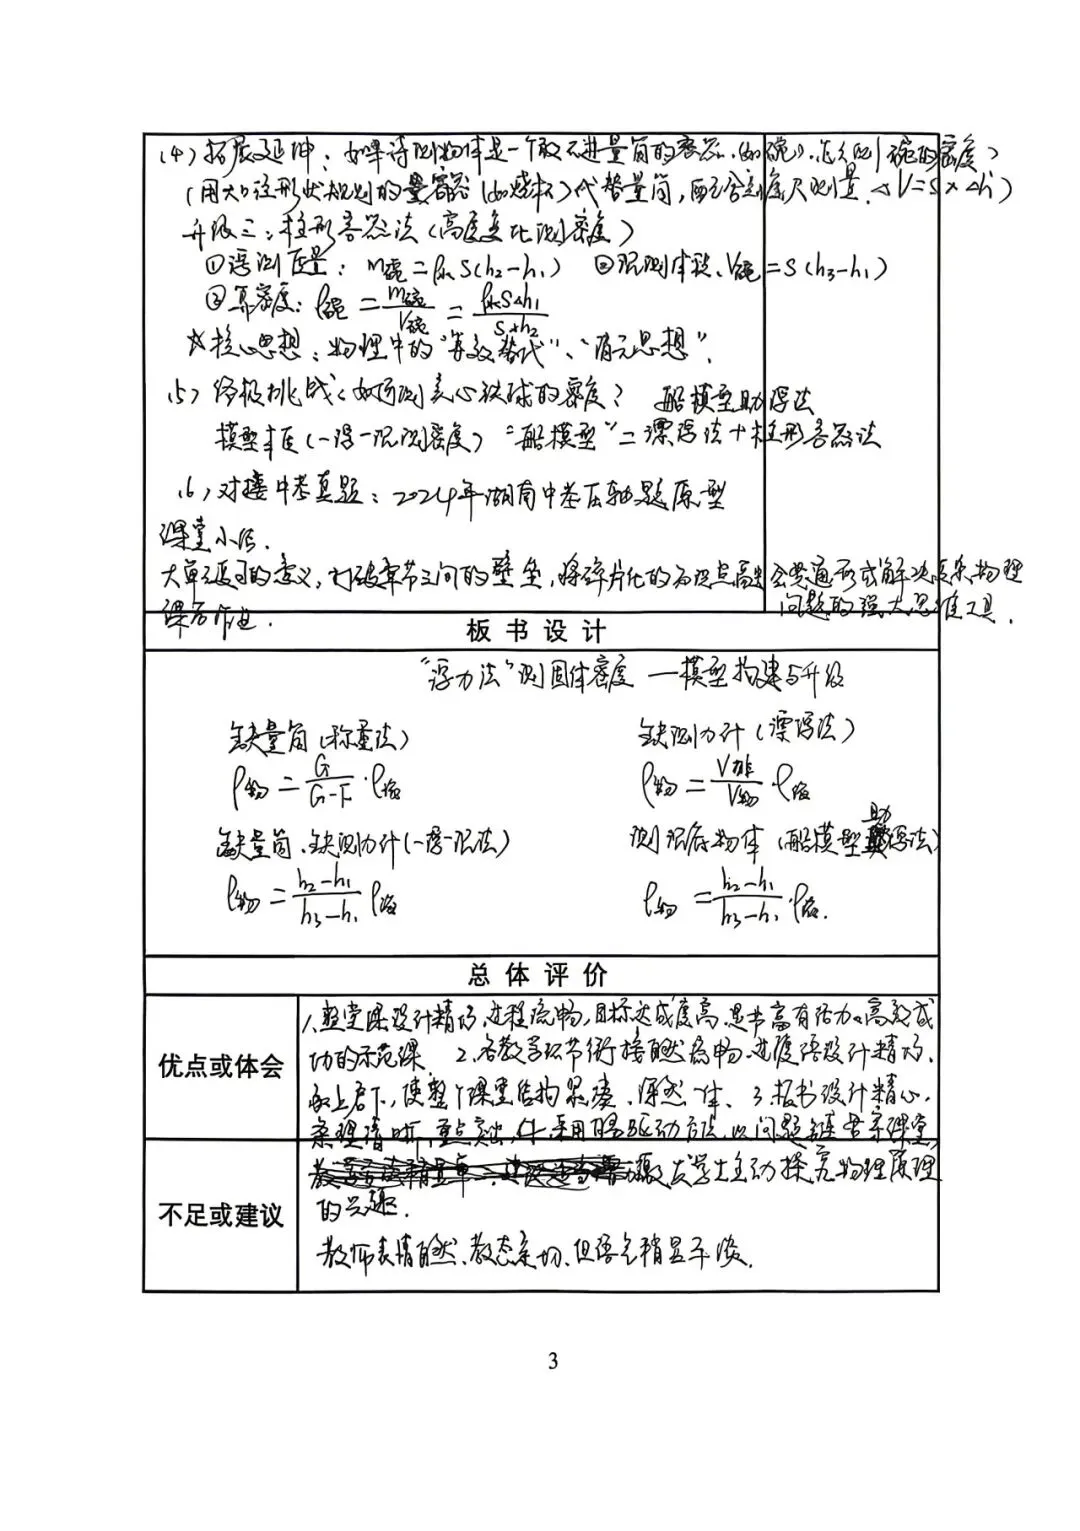 (4) 拓展延伸：如果待测物体是一个放不进量筒的容器(如碗)，怎么测碗的密度？
(用大口径形状规则的量容器(如烧杯)代替量筒，配合刻度尺测量. △V=S×△h)
升级三：柱形容器法(高度变化测密度)
①浮测质量：m碗=ρ水S(h2-h1) ②沉测体积：V碗=S(h3-h1)
③算密度：ρ碗=m碗/V碗=ρ水S△h1/S△h2
☆核心思想：物理中的"等效替代"、"消元思想".
(5) 终极挑战：如何测实心铁球的密度？ 船模型助浮法
模型本质(一浮一沉测密度) "船模型"=漂浮法+柱形容器法
(6) 对接中考真题：2024年湖南中考压轴题原型
课堂小结.
大单元复习的意义，打破章节之间的壁垒，将碎片化的知识点融会贯通形成解决复杂物理
问题的强大思维工具.
课后作业.
板书设计
"浮力法"测固体密度 —模型构建与升级
缺量筒(称重法) 缺测力计(漂浮法)
ρ物=G/(G-F)·ρ液 ρ物=V排/V物·ρ液
缺量筒、缺测力计(一浮一沉法) 测沉底物体(船模型助浮法)
ρ物=(h2-h1)/(h3-h1) ρ液 ρ物=(h2-h1)/(h3-h1)·ρ液.
总体评价
优点或体会
1. 整堂课设计精巧，过程流畅，目标达成度高，是节富有活力，高效成
功的示范课. 2. 各教学环节衔接自然流畅，过渡语设计精巧，
承上启下，使整个课堂结构紧凑、浑然一体、3. 板书设计精心，
条理清晰，重点突出，4. 采用问题驱动方法，以问题链贯穿课堂，
不足或建议
激发学生主动探究物理原理
的兴趣.
教师表情自然、教态亲切，但语气稍显平淡.